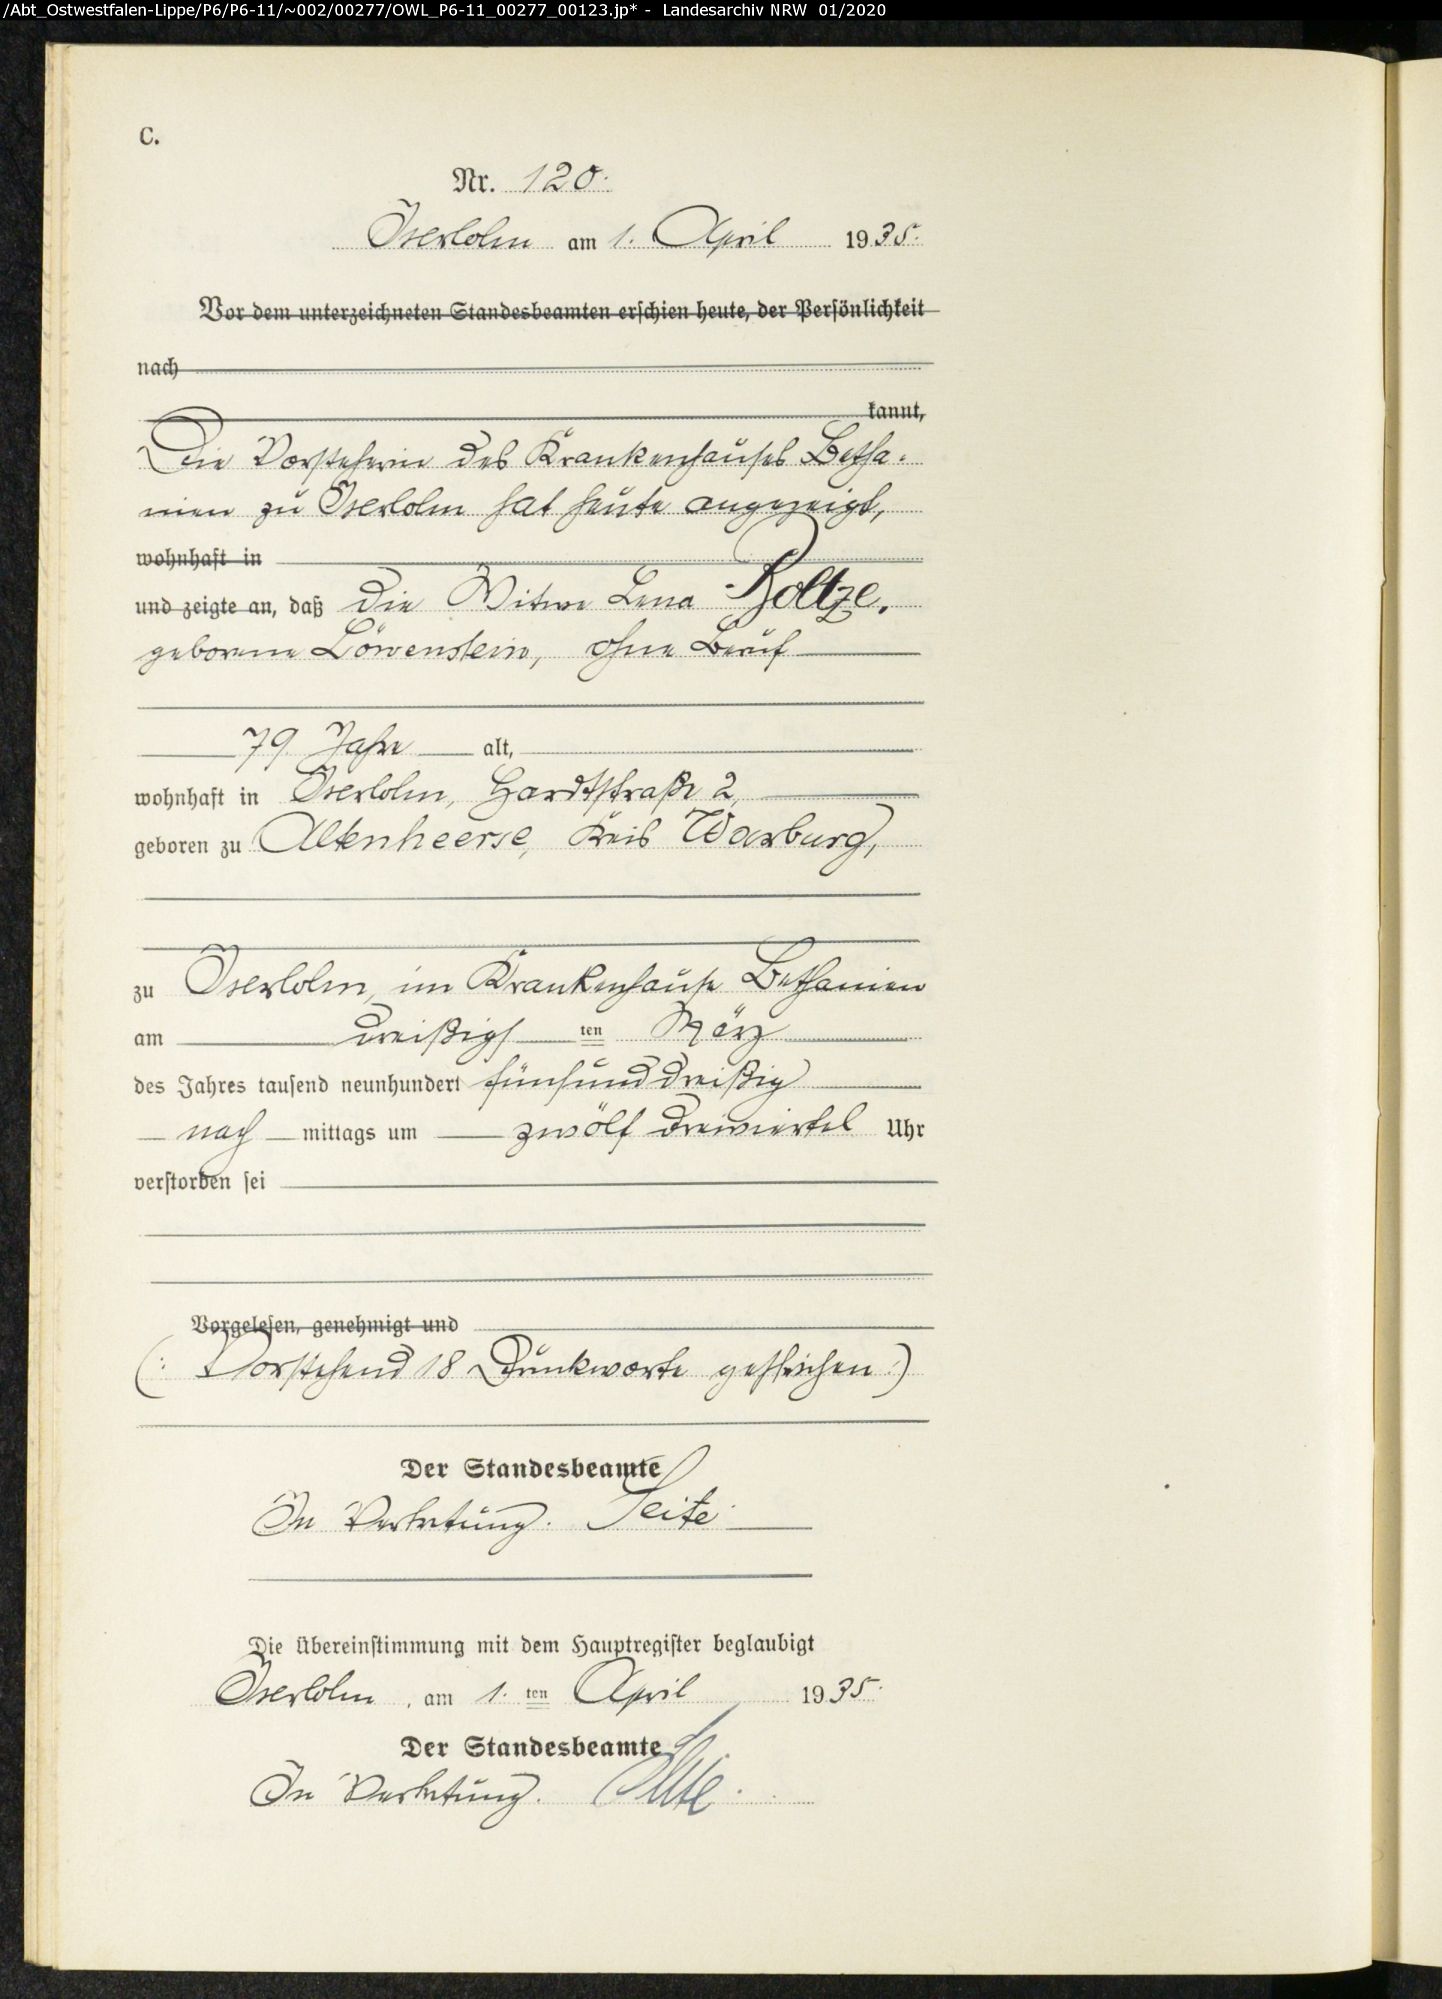 /Abt_Ostwestfalen-Lippe/P6/P6-11/~002/00277/OWL_P6-11_00277_00123.jp* - Landesarchiv NRW 01/2020
C.
Nr. 120.
Iserlohn am 1. April 1935.
Vor dem unterzeichneten Standesbeamten erschien heute, der Persönlichkeit
nach
kannt,
Die Vorsteherin des Krankenhauses Betha-
nien zu Iserlohn hat heute angezeigt,
wohnhaft in
und zeigte an, daß die Witwe Lena Boltze,
geborene Löwenstein, ohne Beruf
79 Jahre alt,
wohnhaft in Iserlohn, Hardtstraße 2,
geboren zu Altenheerse, Kreis Warburg,
zu Iserlohn, im Krankenhause Bethanien
am dreißigsten März
des Jahres tausend neunhundert fünfunddreißig
nach mittags um zwölf dreiviertel Uhr
verstorben sei
Vorgelesen, genehmigt und
(: Vorstehend 18 Druckworte gestrichen :)
Der Standesbeamte
In Vertretung. Seite
Die Übereinstimmung mit dem Hauptregister beglaubigt
Iserlohn, am 1. ten April 1935.
Der Standesbeamte
In Vertretung.